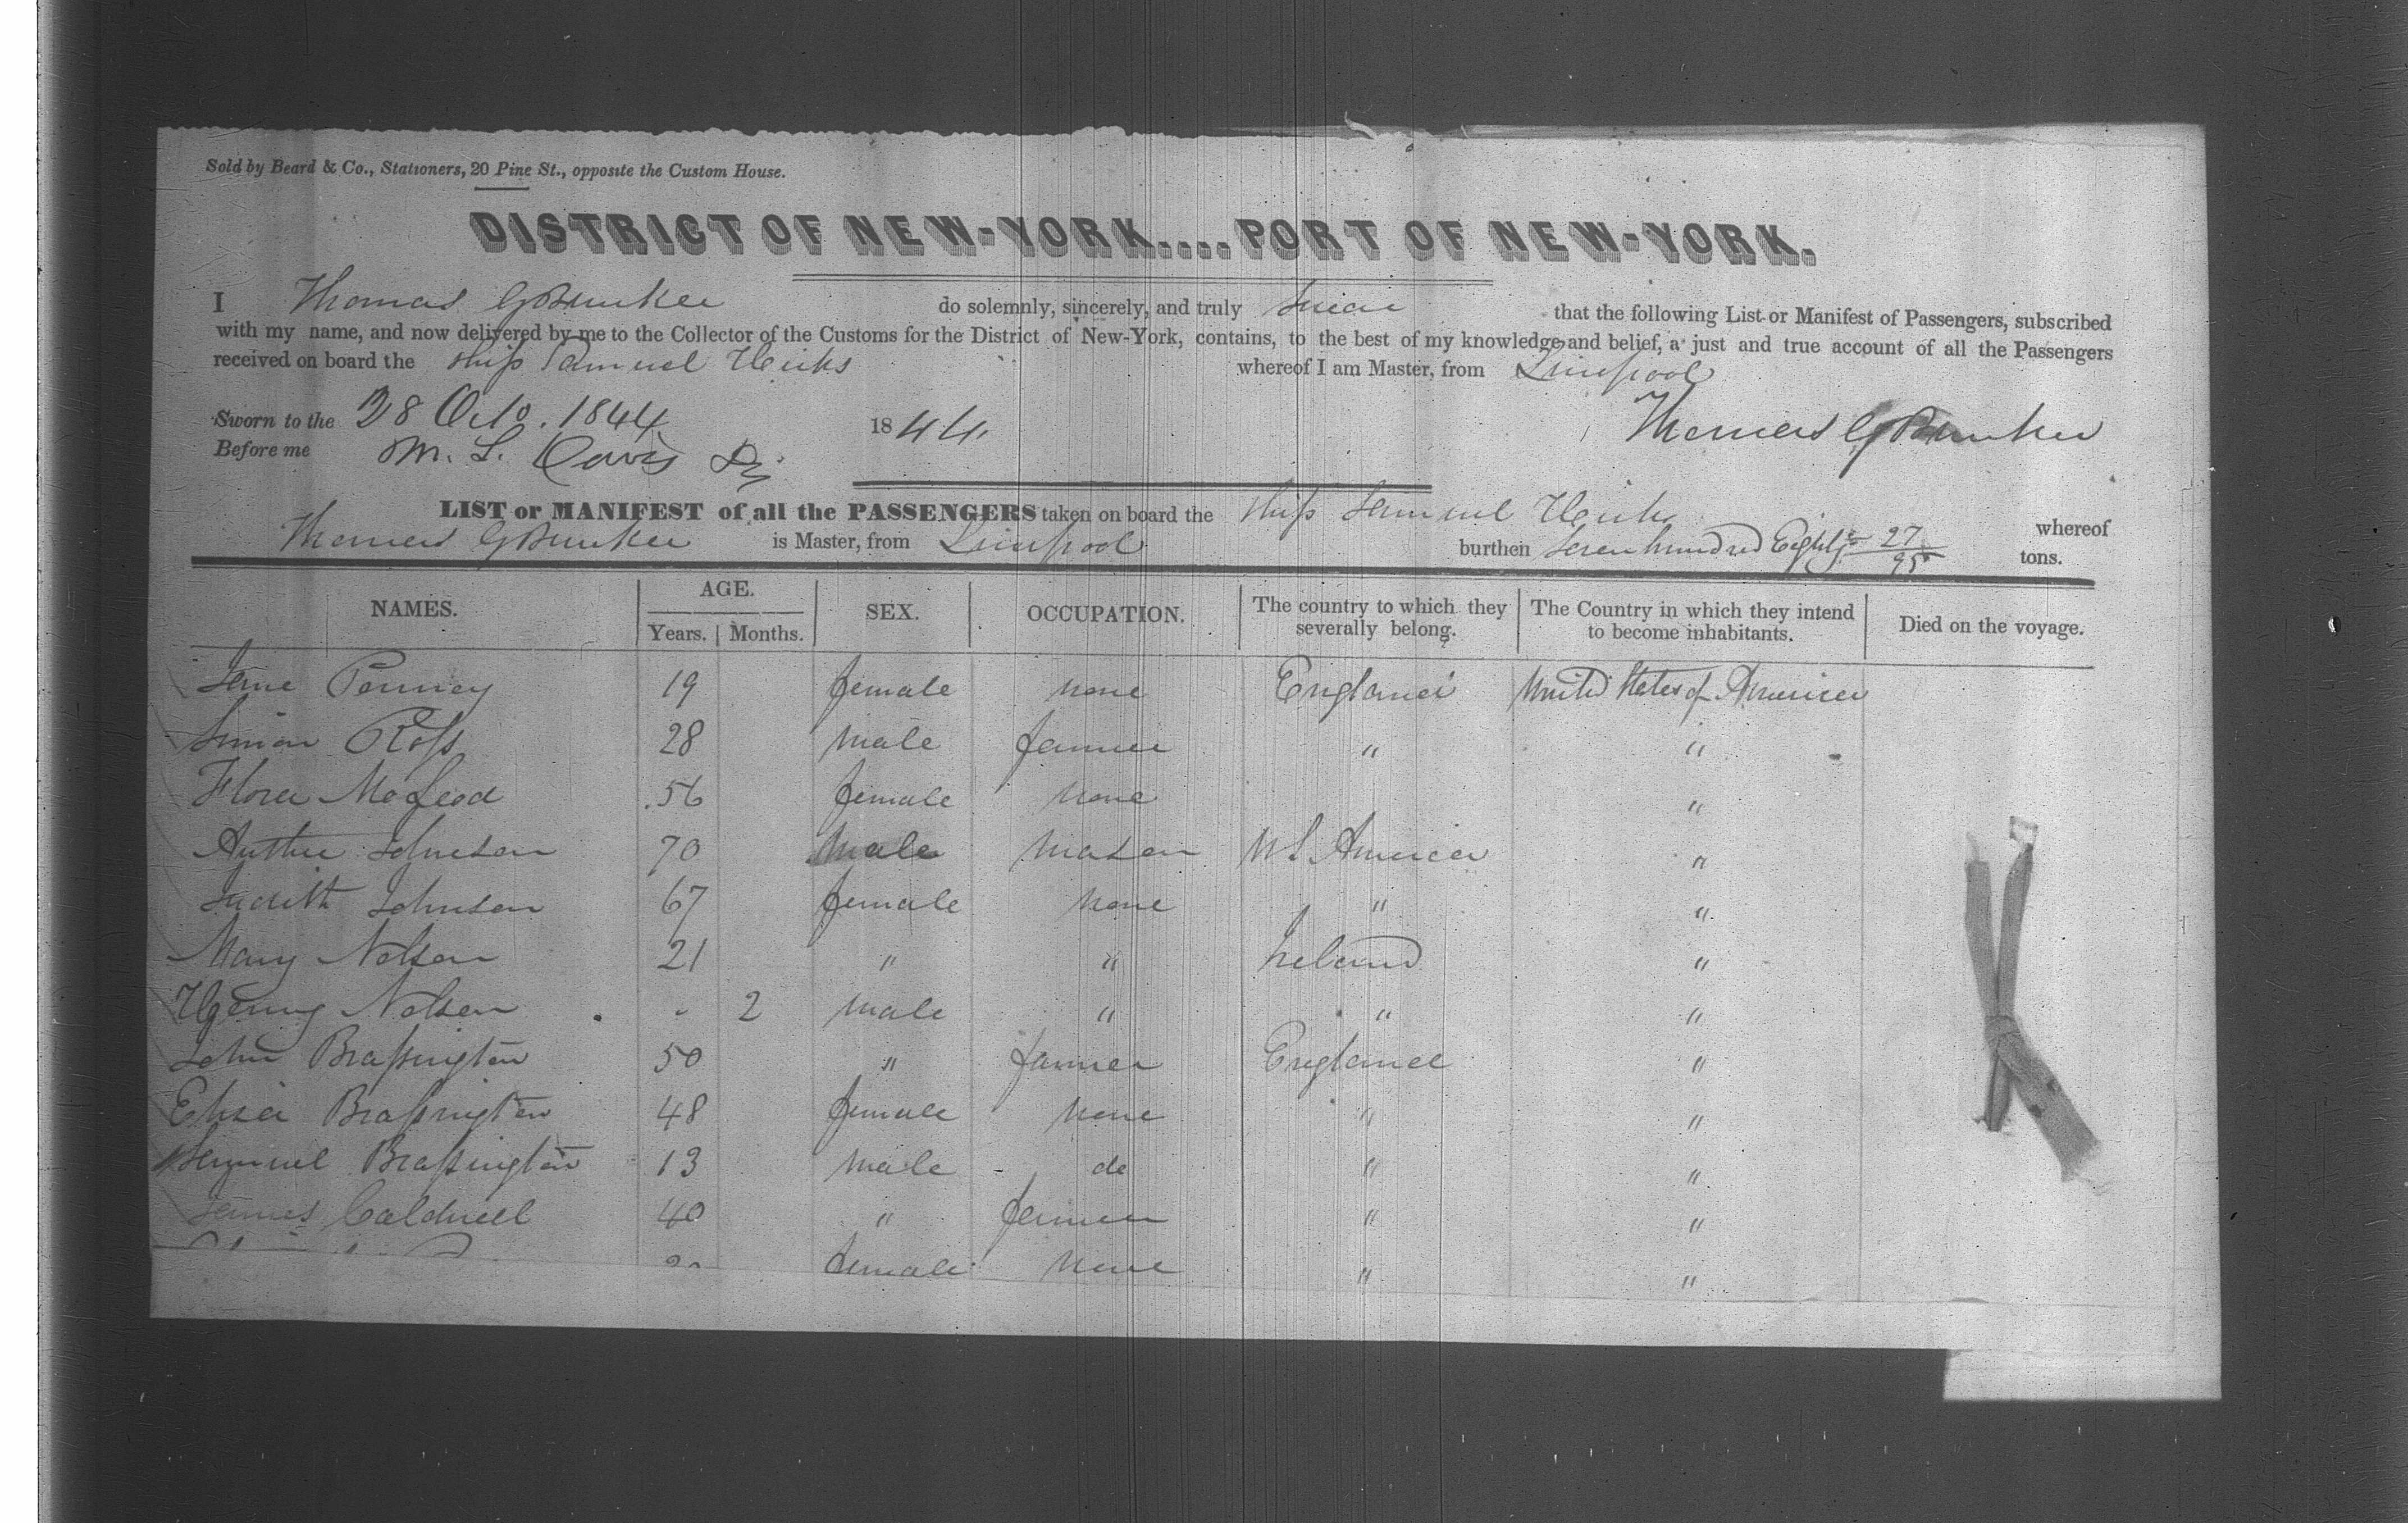 Sold by Beard & Co., Stationers, 20 Pine St., opposite the Custom House.
DISTRICT OF NEW-YORK....PORT OF NEW-YORK.
I Thomas G Bunker do solemnly, sincerely, and truly swear that the following List or Manifest of Passengers, subscribed
with my name, and now delivered by me to the Collector of the Customs for the District of New-York, contains, to the best of my knowledge and belief, a just and true account of all the Passengers
received on board the Ship Samuel Hicks whereof I am Master, from Liverpool
Sworn to the 28 Octo. 1844 1844. Thomas G Bunker
Before me M. L. Davis
LIST or MANIFEST of all the PASSENGERS taken on board the Ship Samuel Hicks whereof
Thomas G Bunker is Master, from Liverpool burthen Seven hundred Eighty 27/95 tons.
NAMES. AGE. Years. Months. SEX. OCCUPATION. The country to which they severally belong. The Country in which they intend to become inhabitants. Died on the voyage.
Jane Penney 19 female none England United States of America
Simon Ross 28 male farmer " "
Flora McLeod 56 female none "
Johnson 70 male mason US America "
Judith Johnson 67 female none " "
Mary Nelson 21 " " Ireland "
Henry Nelson - 2 male " " "
John Brassington 50 " farmer England "
Eliza Brassington 48 female none " "
Samuel Brassington 13 male do " "
James Caldwell 40 " farmer " "
female none " "